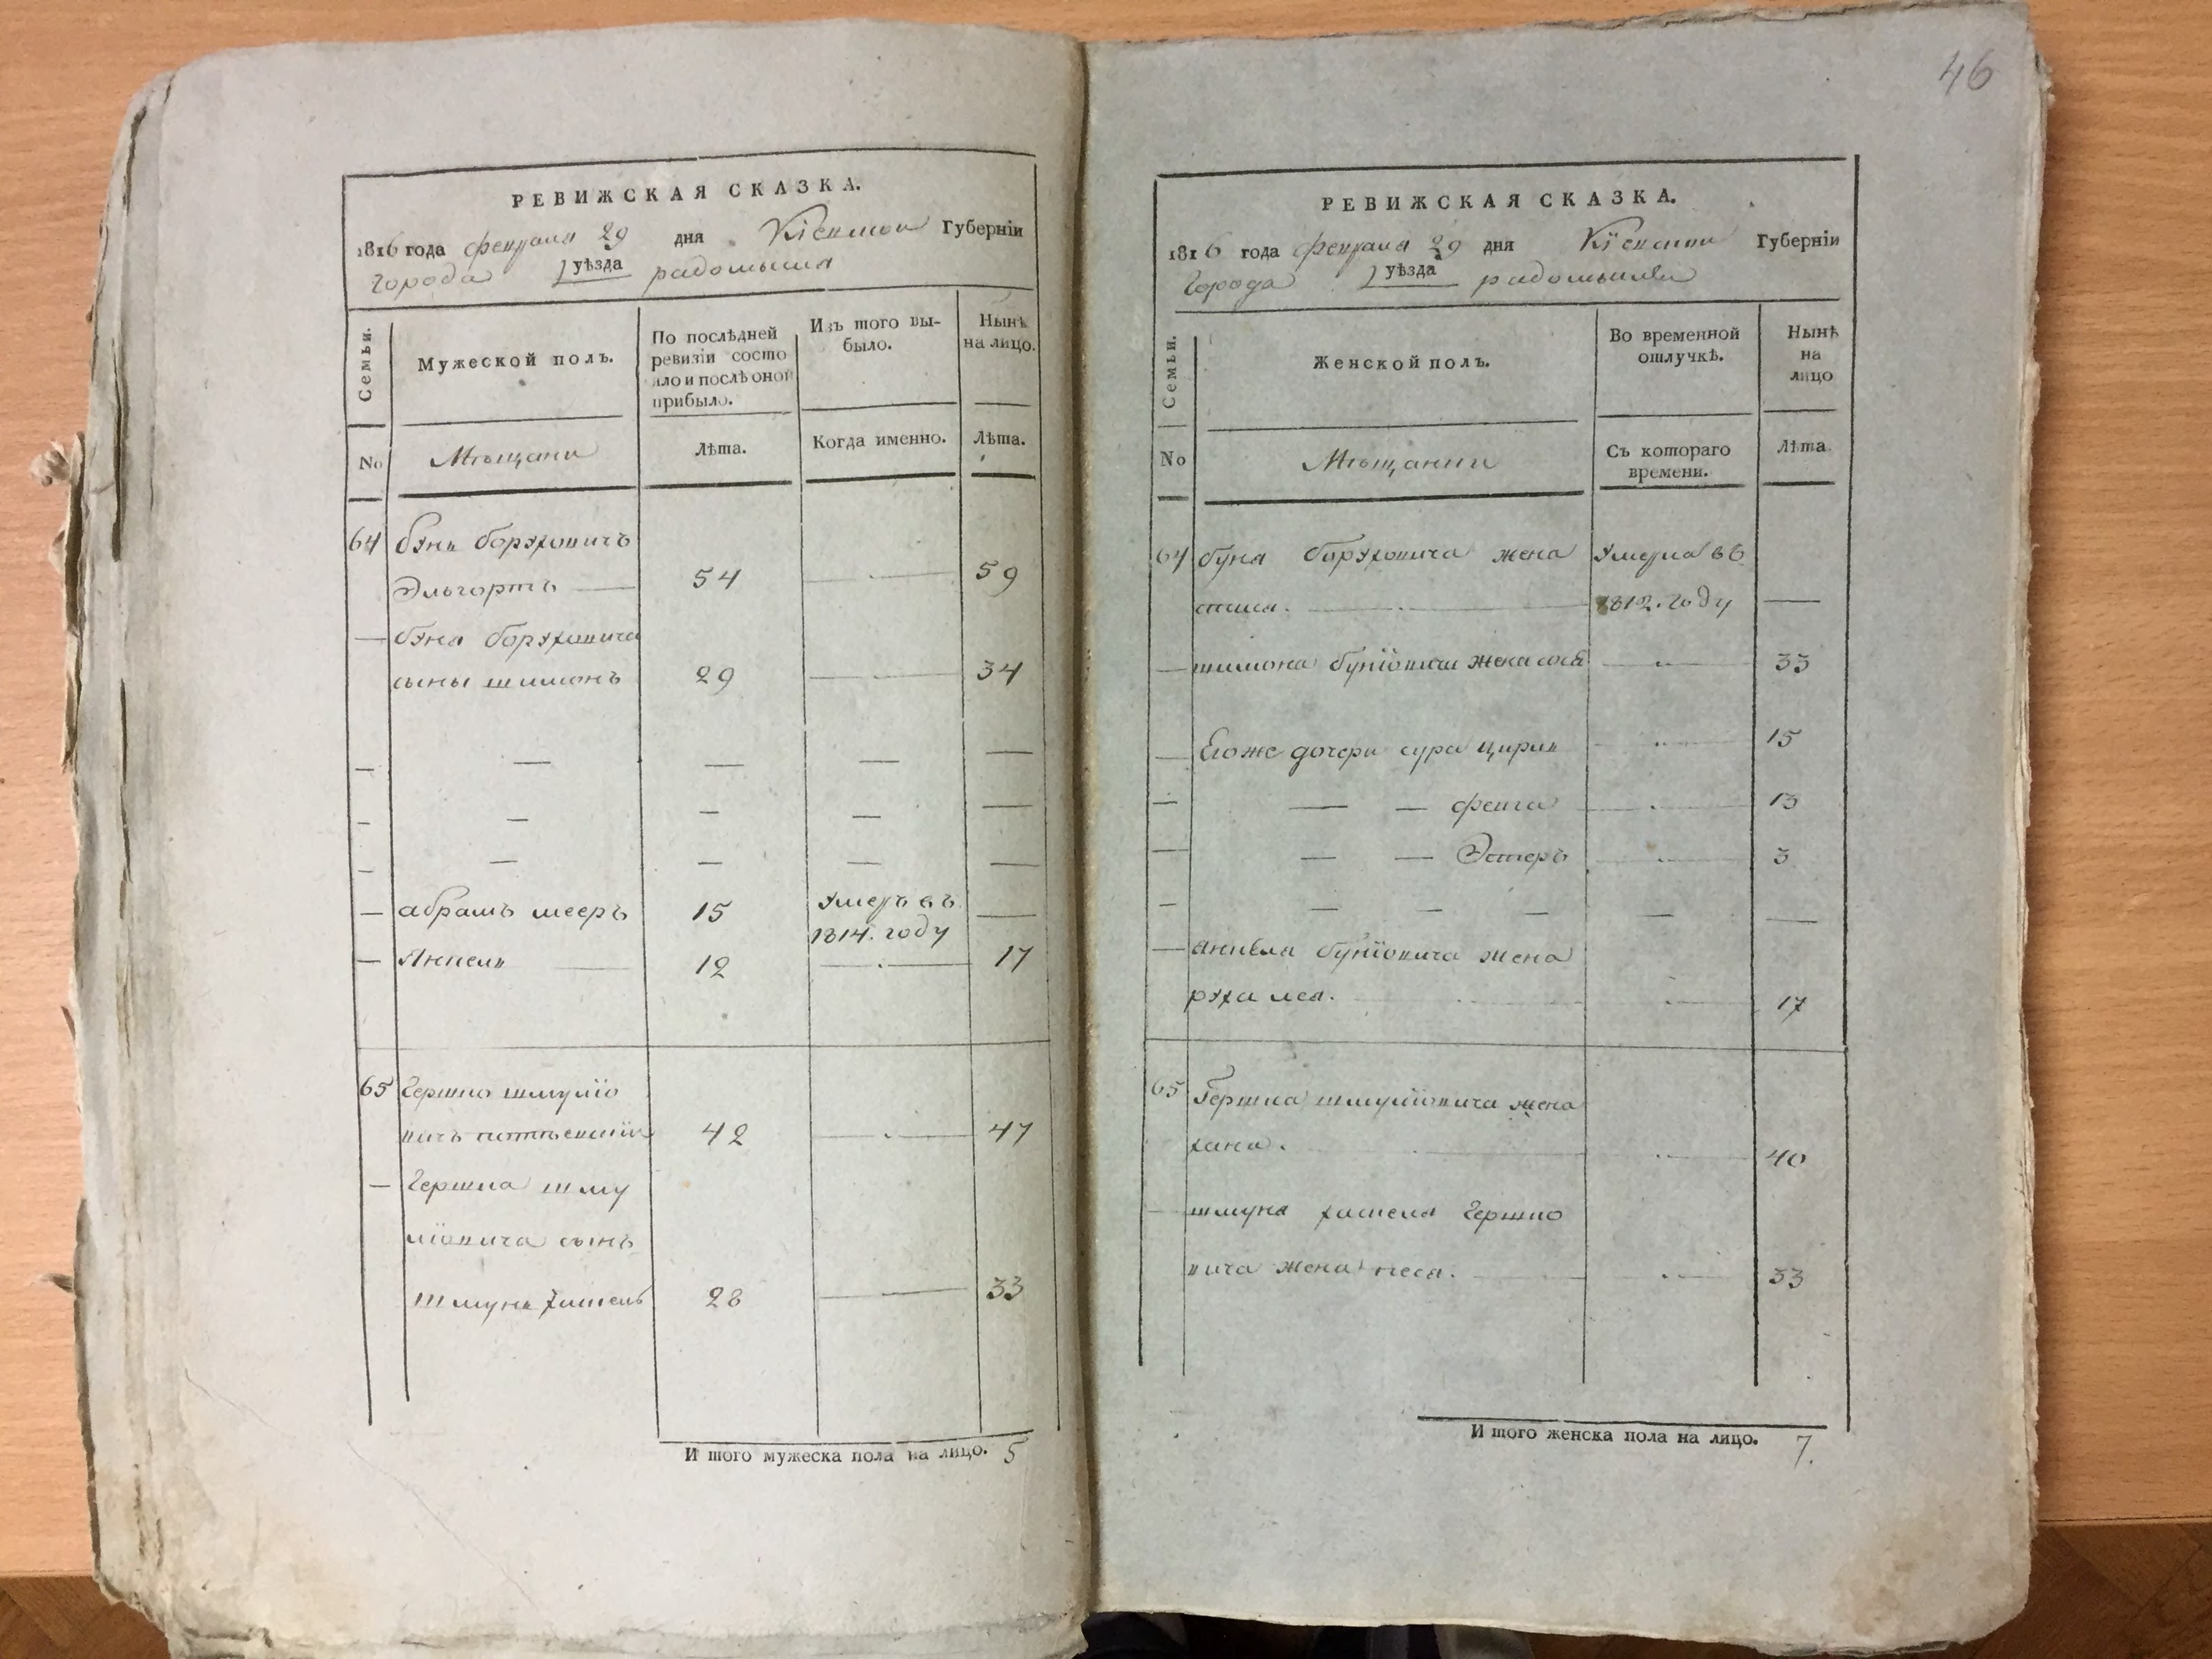 46
РЕВИЖСКАЯ СКАЗКА.
1816 года февраля 29 дня Кіевской Губерніи
города уѣзда радомысля
Семьи.
Мужеской полъ.
По послѣдней
ревизіи состо
яло и послѣ оной
прибыло.
Изъ того вы-
было.
Нынѣ
на лицо.
No
Мѣщани
Лѣта.
Когда именно.
Лѣта.
64 бунь борухович
Эльгортъ 54 59
буня боруховича
сыны шимонъ 29 34
абрамъ мееръ 15 умеръ въ
1814. году
Янкель 12 17
65 Гершко шмуліо
вичъ 42 47
Гершка шму
ліовича сынъ
шмунь 28 33
И того мужеска пола на лицо. 5
РЕВИЖСКАЯ СКАЗКА.
1816 года февраля 29 дня Кіевской Губерніи
Города уѣзда радомысля
Семьи.
Женской полъ.
Во временной
отлучкѣ.
Нынѣ
на
лицо
No
Мѣщанки
Съ котораго
времени.
Лѣта.
64 буня боруховича жена умерла въ
1812. году
шимона буніовича жена 33
Егоже дочери сура цирля 15
фейга 13
Эстеръ 3
янкеля буніовича жена
рухля лея. 17
65 Гершка шмуліовича жена
хана. 40
шмуня Гершко
вича жена песя. 33
И того женска пола на лицо. 7.